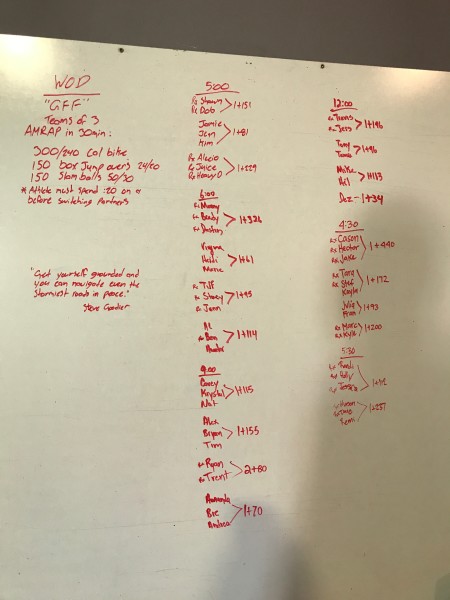 WOD
"GFF"
Teams of 3
AMRAP in 30min:
300/240 Cal bike
150 box Jump overs 24/20
150 Slam balls 50/30
* Athlete must spend :20 on a
before switching partners
"Get yourself grounded and
you can navigate even the
stormiest roads in peace."
Steve Goodier
5:00
Rx Shawn
Rx Bob
1+151
Jamie
Jen
Kim
1+81
Rx Alexio
Rx Juice
Rx Henry O
1+229
6:00
Rx Manny
Rx Brady
Rx Dustin
1+326
Virginia
Heidi
Marie
1+61
Rx Tiff
Rx Stacey
Rx Jenn
1+95
Al
Rx Ben
1+114
9:00
Corey
Krystal
Nat
1+115
Alex
Bryan
Tim
1+155
Rx Ryan
Rx Trent
2+80
Amanda
Bre
Andrea
1+70
12:00
Rx Travis
Rx Jess
1+196
Tony
1+96
Mike
1+113
Daz - 1+34
4:30
Rx Cason
Rx Hector
Rx Jake
1+440
Rx Tara
Rx Stef
Kayla
1+172
Julie
1+93
Rx Marc
Rx Kyle
1+200
5:30